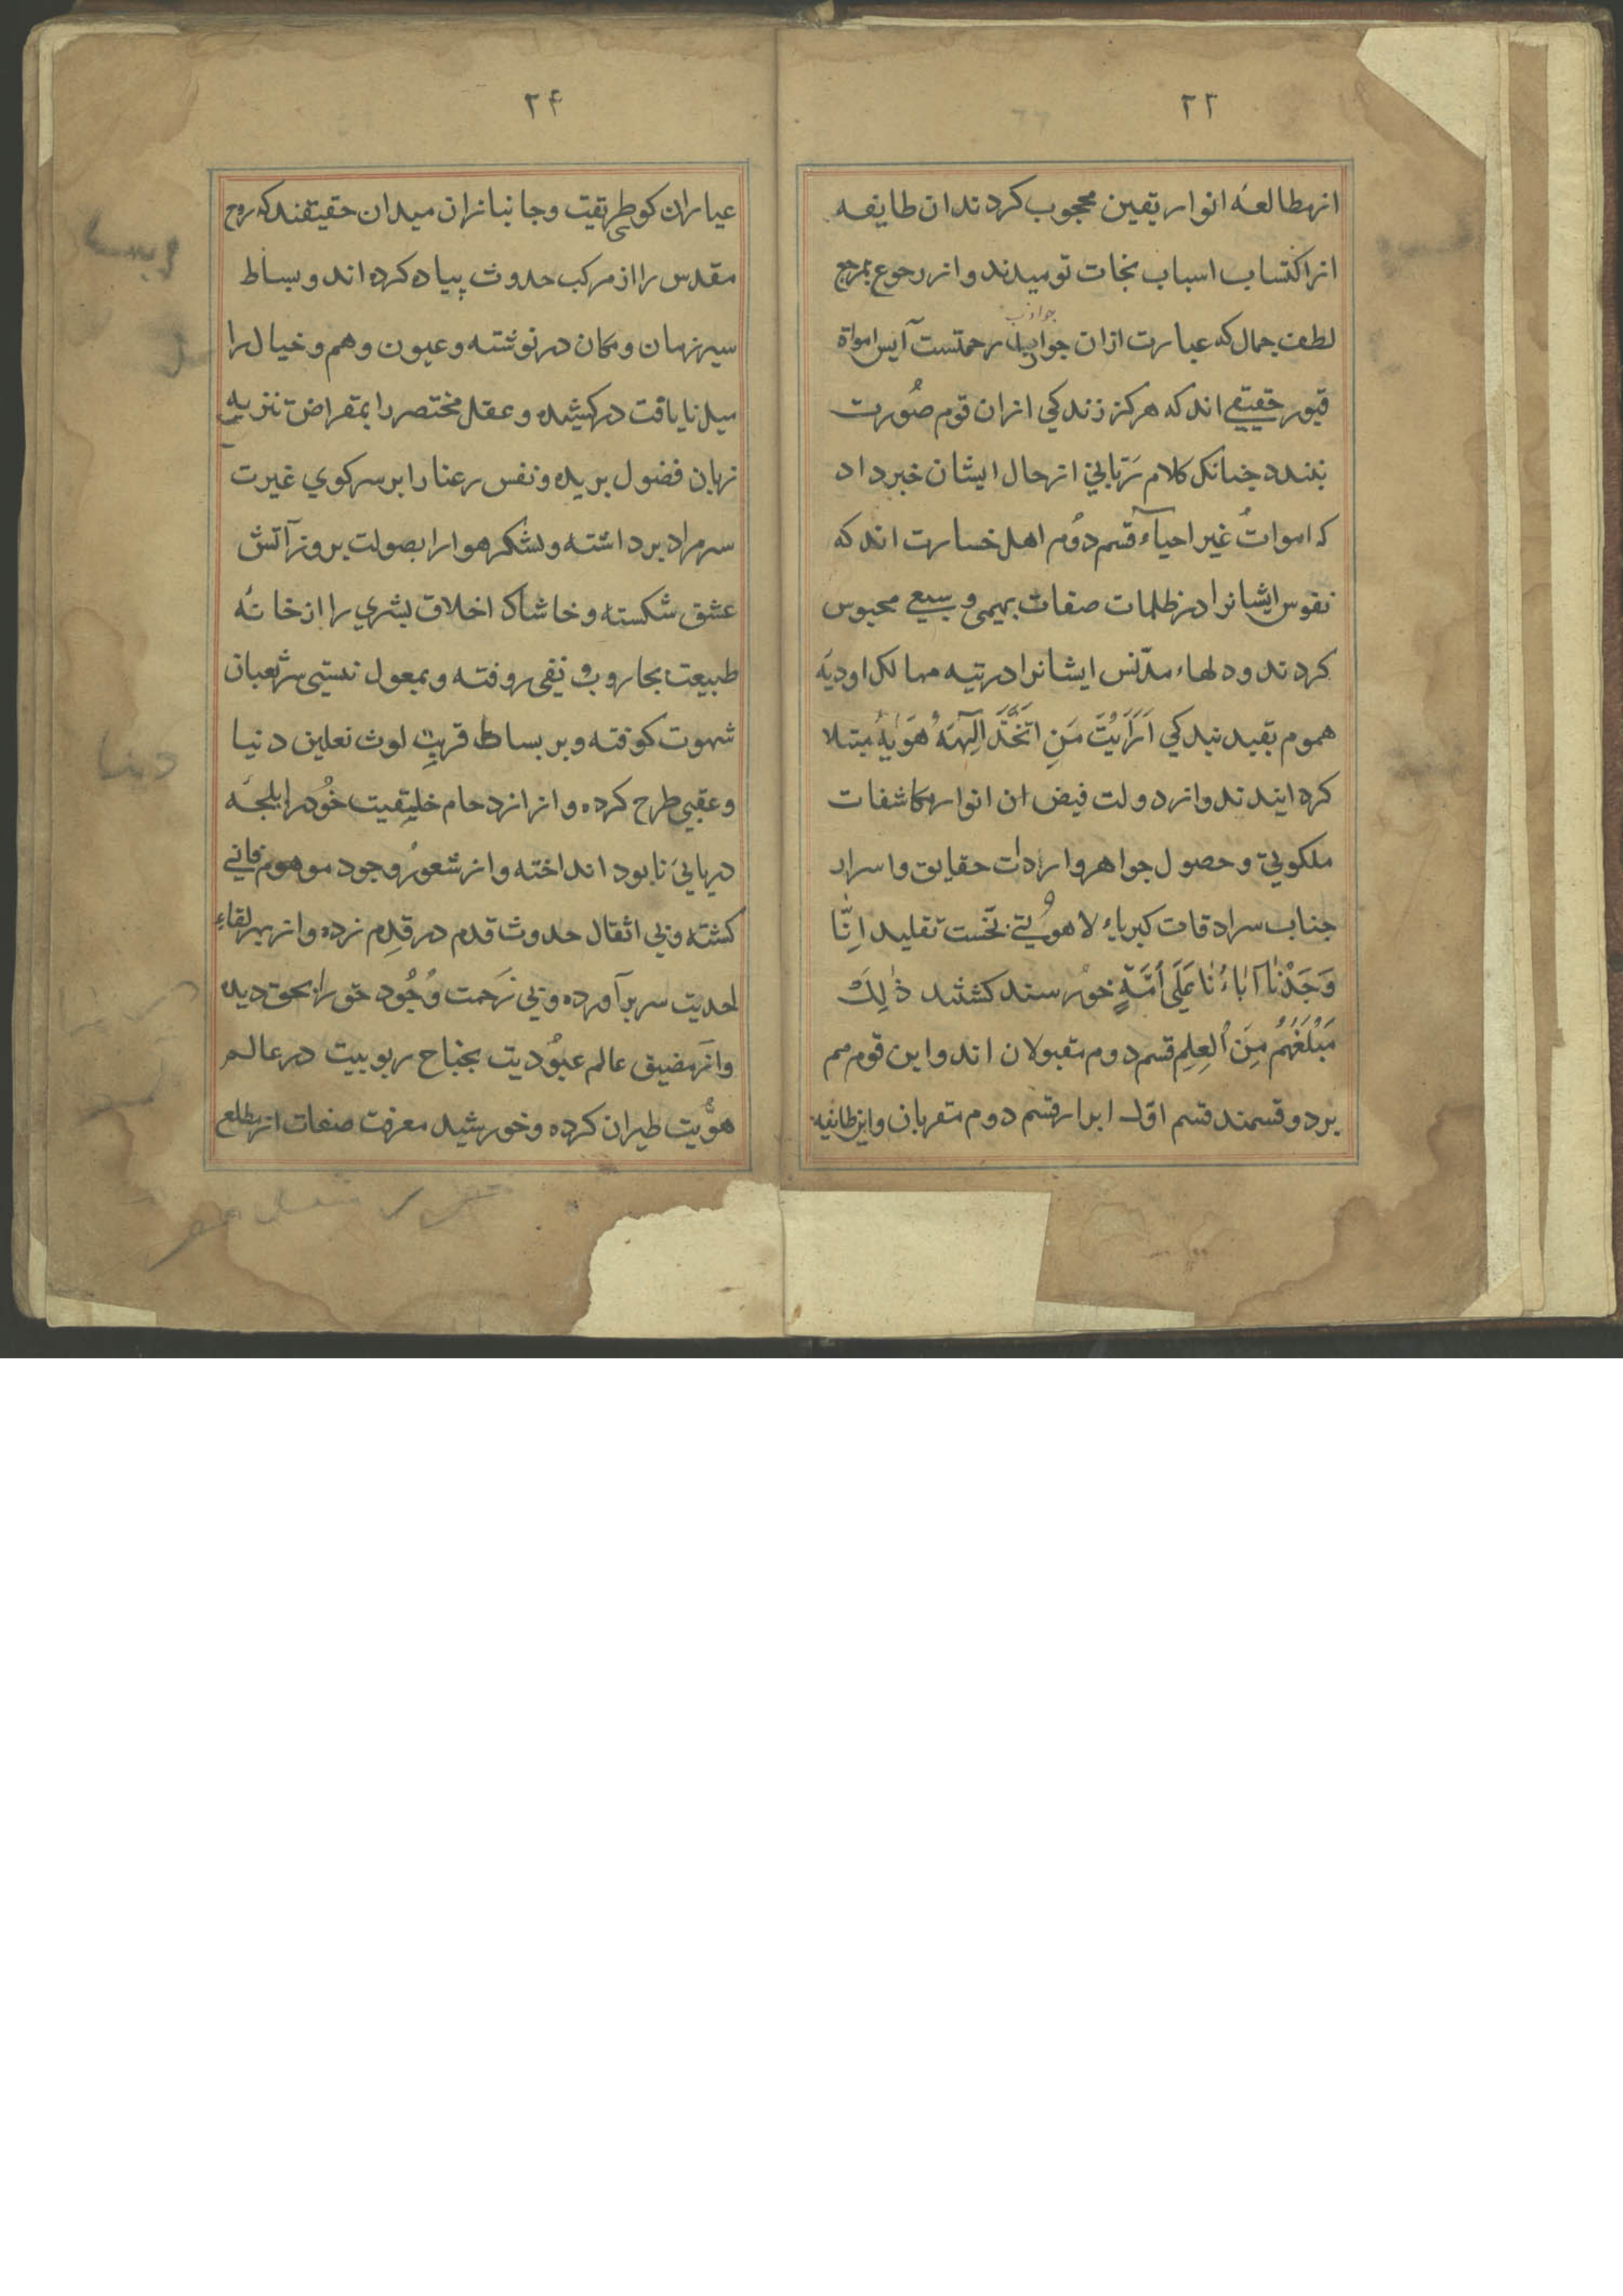 ۲۳
از مطالعهٔ انوار یقین محجوب کردند ان طایفه
از اکتساب اسباب نجات نومیدند و از رجوع بمرجع
لطف جمال که عبارت ازان جواذب رحمتست آیس امواة
جواذب
قبور حقیقے اند که هرکز زندکی ازان قوم صُورت
نبندد جنانک کلام رَبّانی از حال ایشان خبر داد
که امواتٌ غیر احیآء قسم دوُم اهل خسارت اند که
نفوس ایشانرا در ظلمات صفات بهیمی و سبعے محبوس
کردند و دلهاء مدّنس ایشانرا در تیه مهالک اودیَه
هموم بقید بندکی اَرَاَیْتَ مَنِ اتَّخَذَ اِلٰهَهُ هَوٰیهُ مبتلا
کردانیدند و از دولت فیض ان انوار مکاشفات
ملکوتی و حصول جواهر واردات حقایق و اسرار
جناب سرادقات کبریاء لاهوُتے بخست تقلید اِنّا
وَجَدْنٰا اٰبٰاءَنٰا عَلَی اُمَّةٍ خورسند کشتند ذٰلِکَ
مَبْلَغُهُمْ مِنَ الْعِلْمِ قسم دوم مقبولان اند و این قوم هم
بر دو قسمند قسم اول ابرار قسم دوم مقربان و این طایفه
۲۴
عیاران کوی طریقت و جانبازان میدان حقیقتند که روح
مقدس را از مرکب حدوث پیاده کرده اند و بساط
سیر زمان و مکان در نوشته و عیون وهم و خیال را
میل نایافت در کشیده و عقل مختصر را بمقراض تنزیه
زبان فضول بریده و نفس رعنا را بر سر کوی غیرت
سر مراد برداشته و لشکر هوا را بصولت بروز آتش
عشق شکسته و خاشاک اخلاق بشری را از خانهٔ
طبیعت بجاروب نفی روفته و بمعول نیستی سر ثعبان
شهوت کوفته و بر بساط قربت لوث نعلین دنیا
و عقبی طرح کرده و از ازدحام خلیقیت خوُد را بلجهٔ
دریایَ نابود انداخته و از شعور وجود موهوم فانے
کشته و بی اثقال حدوث قدم در قدم زده و از بهر لقاء
احدیت سر برآورده و بی زحمت وُجُود حق را بحق دیده
و از مضیق عالم عبوُدیت بجناح ربوبیت در عالم
هوُّیت طیران کرده و خورشید معرفت صفات از مطلع
دنیا